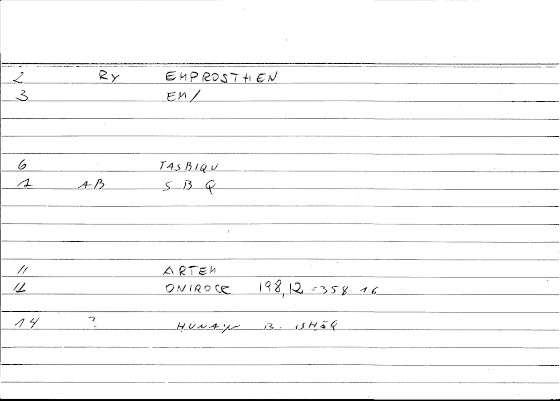 2 RY EMPROSTHEN
3 EM/
6 TASBIQU
7 AB S B Q
11 ARTEM
12 ONIROCR 198,12 = 358.16
14 ? HUNAYN B. ISHĀQ